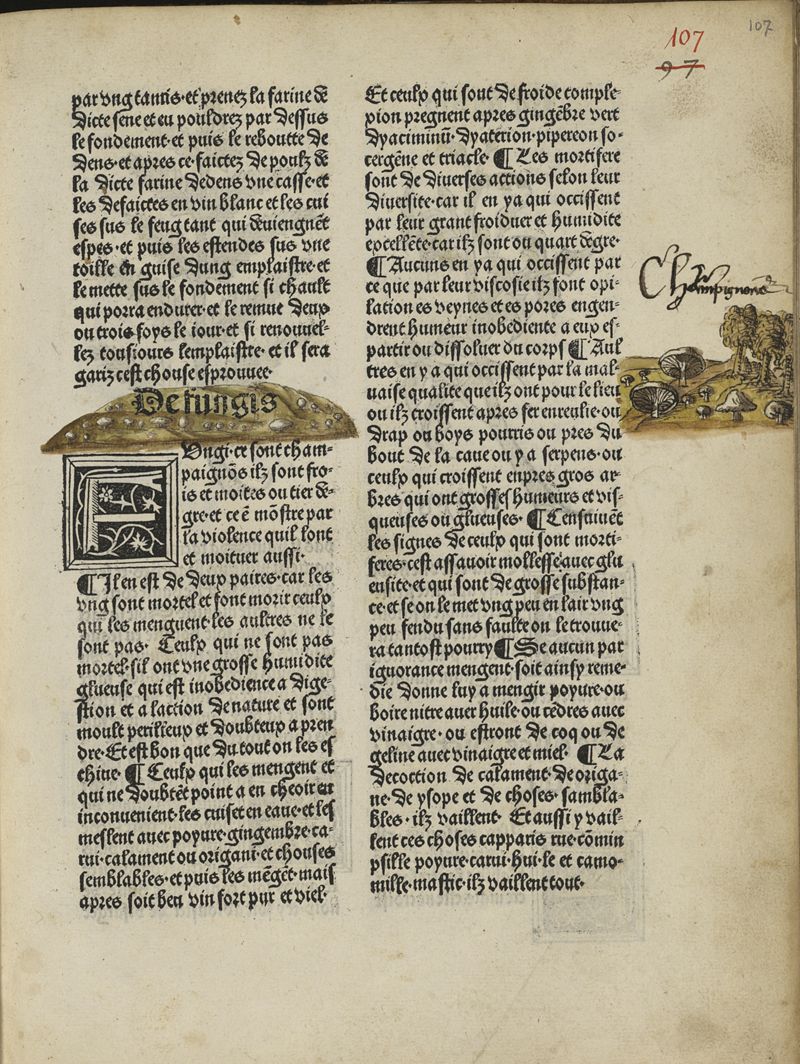 107
107
97
par vng tamis·et prenez la farine de
dicte sene et eu pouldrez par dessus
le fondement·et puis le reboutte de
dens·et apres ce·faictez de poulz de
la dicte farine dedens vne casse·et
les defaictes en vin blanc et les cui
ses sus le feu tant qui deuiengnēt
espes·et puis les estendes sus vne
toille en guise dung emplaistre·et
le mette sus le fondement si chault
qui porra endurer·et le remue deux
ou trois foys le iour·et si renouuel-
lez tousiours lemplaistre·et il sera
gariz cest chouse esprouuee·
De fungis
FUngi·ce sont cham-
paignōs ilz sont fro-
is et moites ou tier de-
gre·et ce ē mōstre par
la violence quil sont
et moituer aussi·
¶Il en est de deux paires·car les
vng sont mortel et font morir ceulx
qui les menguent·les aultres ne le
sont pas· Ceulx qui ne sont pas
mortel·sil ont vne grosse humidite
glueuse qui est inobedience a dige-
stion et a laction de nature et sont
moult perilieux et doubteux a pren
dre·Et est bon que du tout on les es
chiue·¶Ceulx qui les mengent et
qui ne doubtēt point a en cheoir en
inconuenient·les cuiset en eaue·et les
meslent auec poyure·gingembre·ca-
rui·calament ou origani·et chouses
semblables·et puis les mēgēt·mais
apres soit beu vin fort pur et viel·
Et ceulx qui sont de froide comple-
xion pregnent apres gingēbre vert
dyaciminū·dyaterion·pipereon so-
cergēne et triacle·¶Les mortifere
sont de diuerses actions selon leur
diuersite·car il en ya qui occissent
par leur grant froiduer et humidite
excellēte·car ilz sont ou quart degre·
¶Aucuns en ya qui occissent par
ce que par leur viscosie ilz font opi-
lation es veynes et es pores engen-
drent humeur inobediente a eux es-
partir ou dissoluer du corps¶Aul
tres en y a qui occissent par la mal-
uaise qualite que ilz ont pour le lieu
ou ilz croissent apres fer enreulie·ou
drap ou boys pourris ou pres du
bout de la caue ou y a serpens·ou
ceulx qui croissent enpres gros ar-
bres qui ont grosses humeurs et vis-
queuses ou glueuses·¶Censuiuēt
les signes de ceulx qui sont morti-
feres·cest assauoir mollesse auec glu
ensite·et qui sont de grosse substan-
ce·et se on le met vng peu en lair vng
peu fendu sans faulte on le trouue-
ra tantost pourry¶Se aucun par
ignorance mengent·soit ainsy reme-
die donne luy a mengir poyure·ou
boire nitre auer huile·ou cēdres auec
vinaigre·ou estront de coq ou de
geline auec vinaigre et miel·¶La
decoction de calament·de origa-
ne·de ysope et de choses·sambla-
bles·ilz vaillent· Et aussi y vail-
lent ces choses capparis rue·cōmin
psille poyure·carui·hui·le et camo-
mille·mastic·ilz vaillent tout·
Champignons